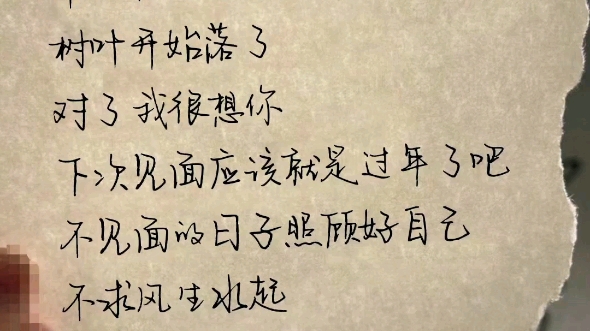 树叶开始落了
对了我很想你
下次见面应该就是过年了吧
不见面的日子照顾好自己
不求风生水起